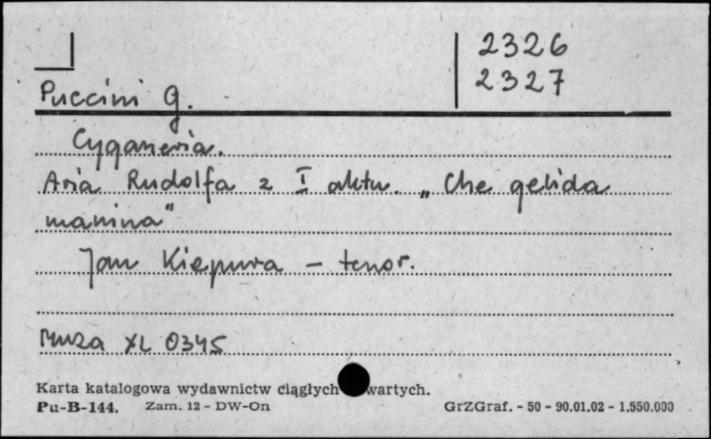 2326
2327
Puccini G.
Cyganeria.
Aria Rudolfa z I aktu. „Che gelida
manina"
Jan Kiepura – tenor.
Muza XL 0345
Karta katalogowa wydawnictw ciągłych wartych.
Pu-B-144. Zam. 12 - DW-On GrZGraf. - 50 - 90.01.02 - 1.550.000